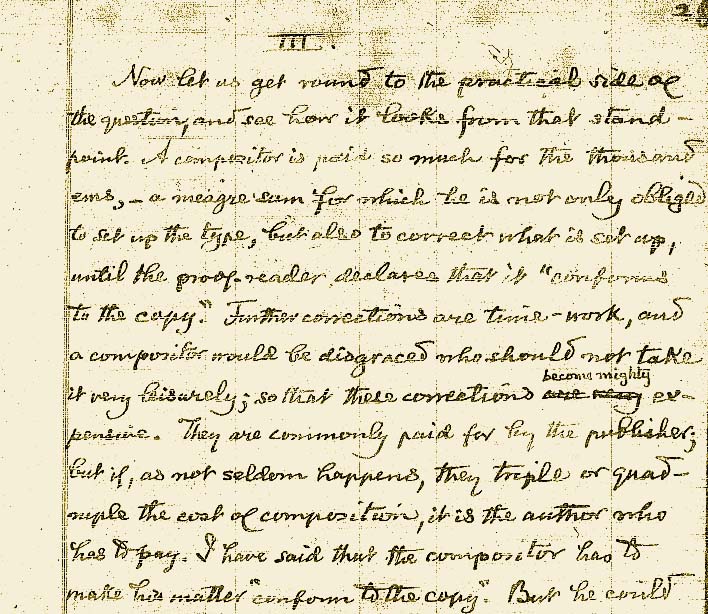 2
III.
Now let us get round to the practical side of
the question, and see how it looks from that stand-
point. A compositor is paid so much for the thousand
ems, – a meagre sum for which he is not only obliged
to set up the type, but also to correct what is set up,
until the proof-reader declares that it "conforms
to the copy." Further corrections are time-work, and
a compositor would be disgraced who should not take
it very leisurely; so that these corrections are very ex-
become mighty
pensive. They are commonly paid for by the publisher;
but if, as not seldom happens, they triple or quad-
ruple the cost of composition, it is the author who
has to pay. I have said that the compositor has to
make his matter "conform to the copy". But he could